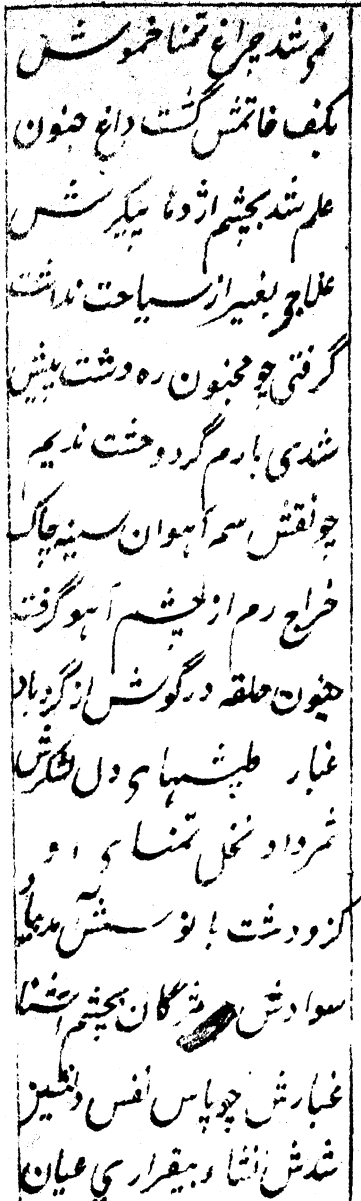 نم شد چراغ تمنا خموش
بکف خاتمش گشت داغ جنون
علم شد بچشم اژدها پیکرش
علاجی بغیر از سیاحت نداشت
گرفتی چو مجنون ره دشت پیش
شدی با رم گرد وحشت ندیم
چو نقش سم آهوان سینه چاک
خراج رم از چشم آهو گرفت
جنون حلقه در گوش از گردباد
غبار طپشهای دل لشکرش
ثمر داد نخل تمنای او
کزو دشت
سوادش مژگان بچشم آشنا
غبارش چو پاس نفس دلنشین
شدش نشاء بیقراری عیان